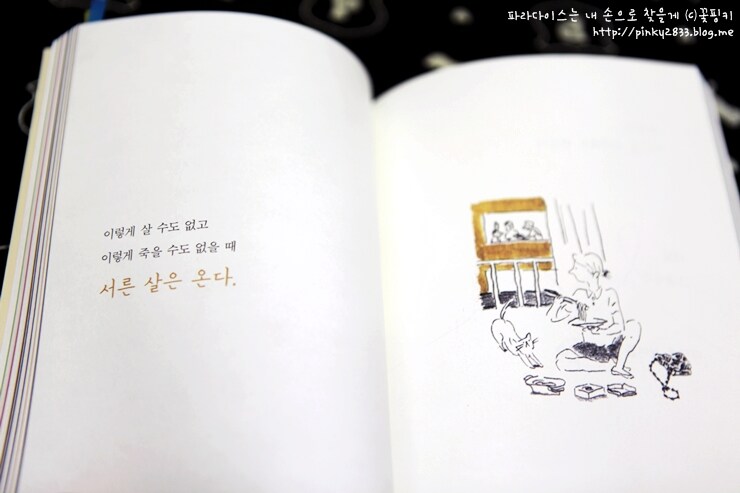 파라다이스는 내 손으로 찾을게 (c)꽃핑키
http://pinky2833.blog.me
이렇게 살 수도 없고
이렇게 죽을 수도 없을 때
서른 살은 온다.